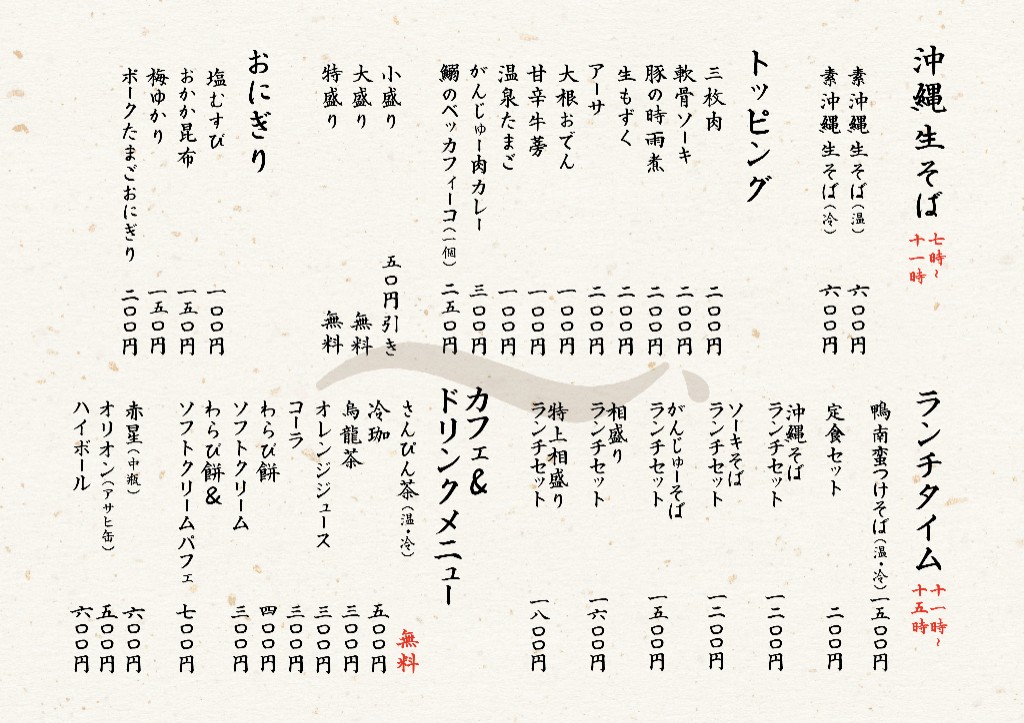 沖縄生そば
七時〜
十一時
素沖縄生そば（温） 六〇〇円
素沖縄生そば（冷） 六〇〇円
トッピング
三枚肉 二〇〇円
軟骨ソーキ 二〇〇円
豚の時雨煮 二〇〇円
生もずく 二〇〇円
アーサ 二〇〇円
大根おでん 一〇〇円
甘辛牛蒡 一〇〇円
温泉たまご 一〇〇円
がんじゅー肉カレー 三〇〇円
鰯のベッカフィーコ（一個） 二五〇円
小盛り 五〇円引き
大盛り 無料
特盛り 無料
おにぎり
塩むすび 一〇〇円
おかか昆布 一五〇円
梅ゆかり 一五〇円
ポークたまごおにぎり 二〇〇円
ランチタイム
十一時〜
十五時
鴨南蛮つけそば（温・冷） 一五〇〇円
定食セット 二〇〇円
沖縄そば
ランチセット 一二〇〇円
ソーキそば
ランチセット 一二〇〇円
がんじゅーそば
ランチセット 一五〇〇円
相盛り
ランチセット 一六〇〇円
特上相盛り
ランチセット 一八〇〇円
カフェ&
ドリンクメニュー
さんぴん茶（温・冷） 無料
冷珈 五〇〇円
烏龍茶 三〇〇円
オレンジジュース 三〇〇円
コーラ 三〇〇円
わらび餅 四〇〇円
ソフトクリーム 三〇〇円
わらび餅&
ソフトクリームパフェ 七〇〇円
赤星（中瓶） 六〇〇円
オリオン（アサヒ缶） 五〇〇円
ハイボール 六〇〇円